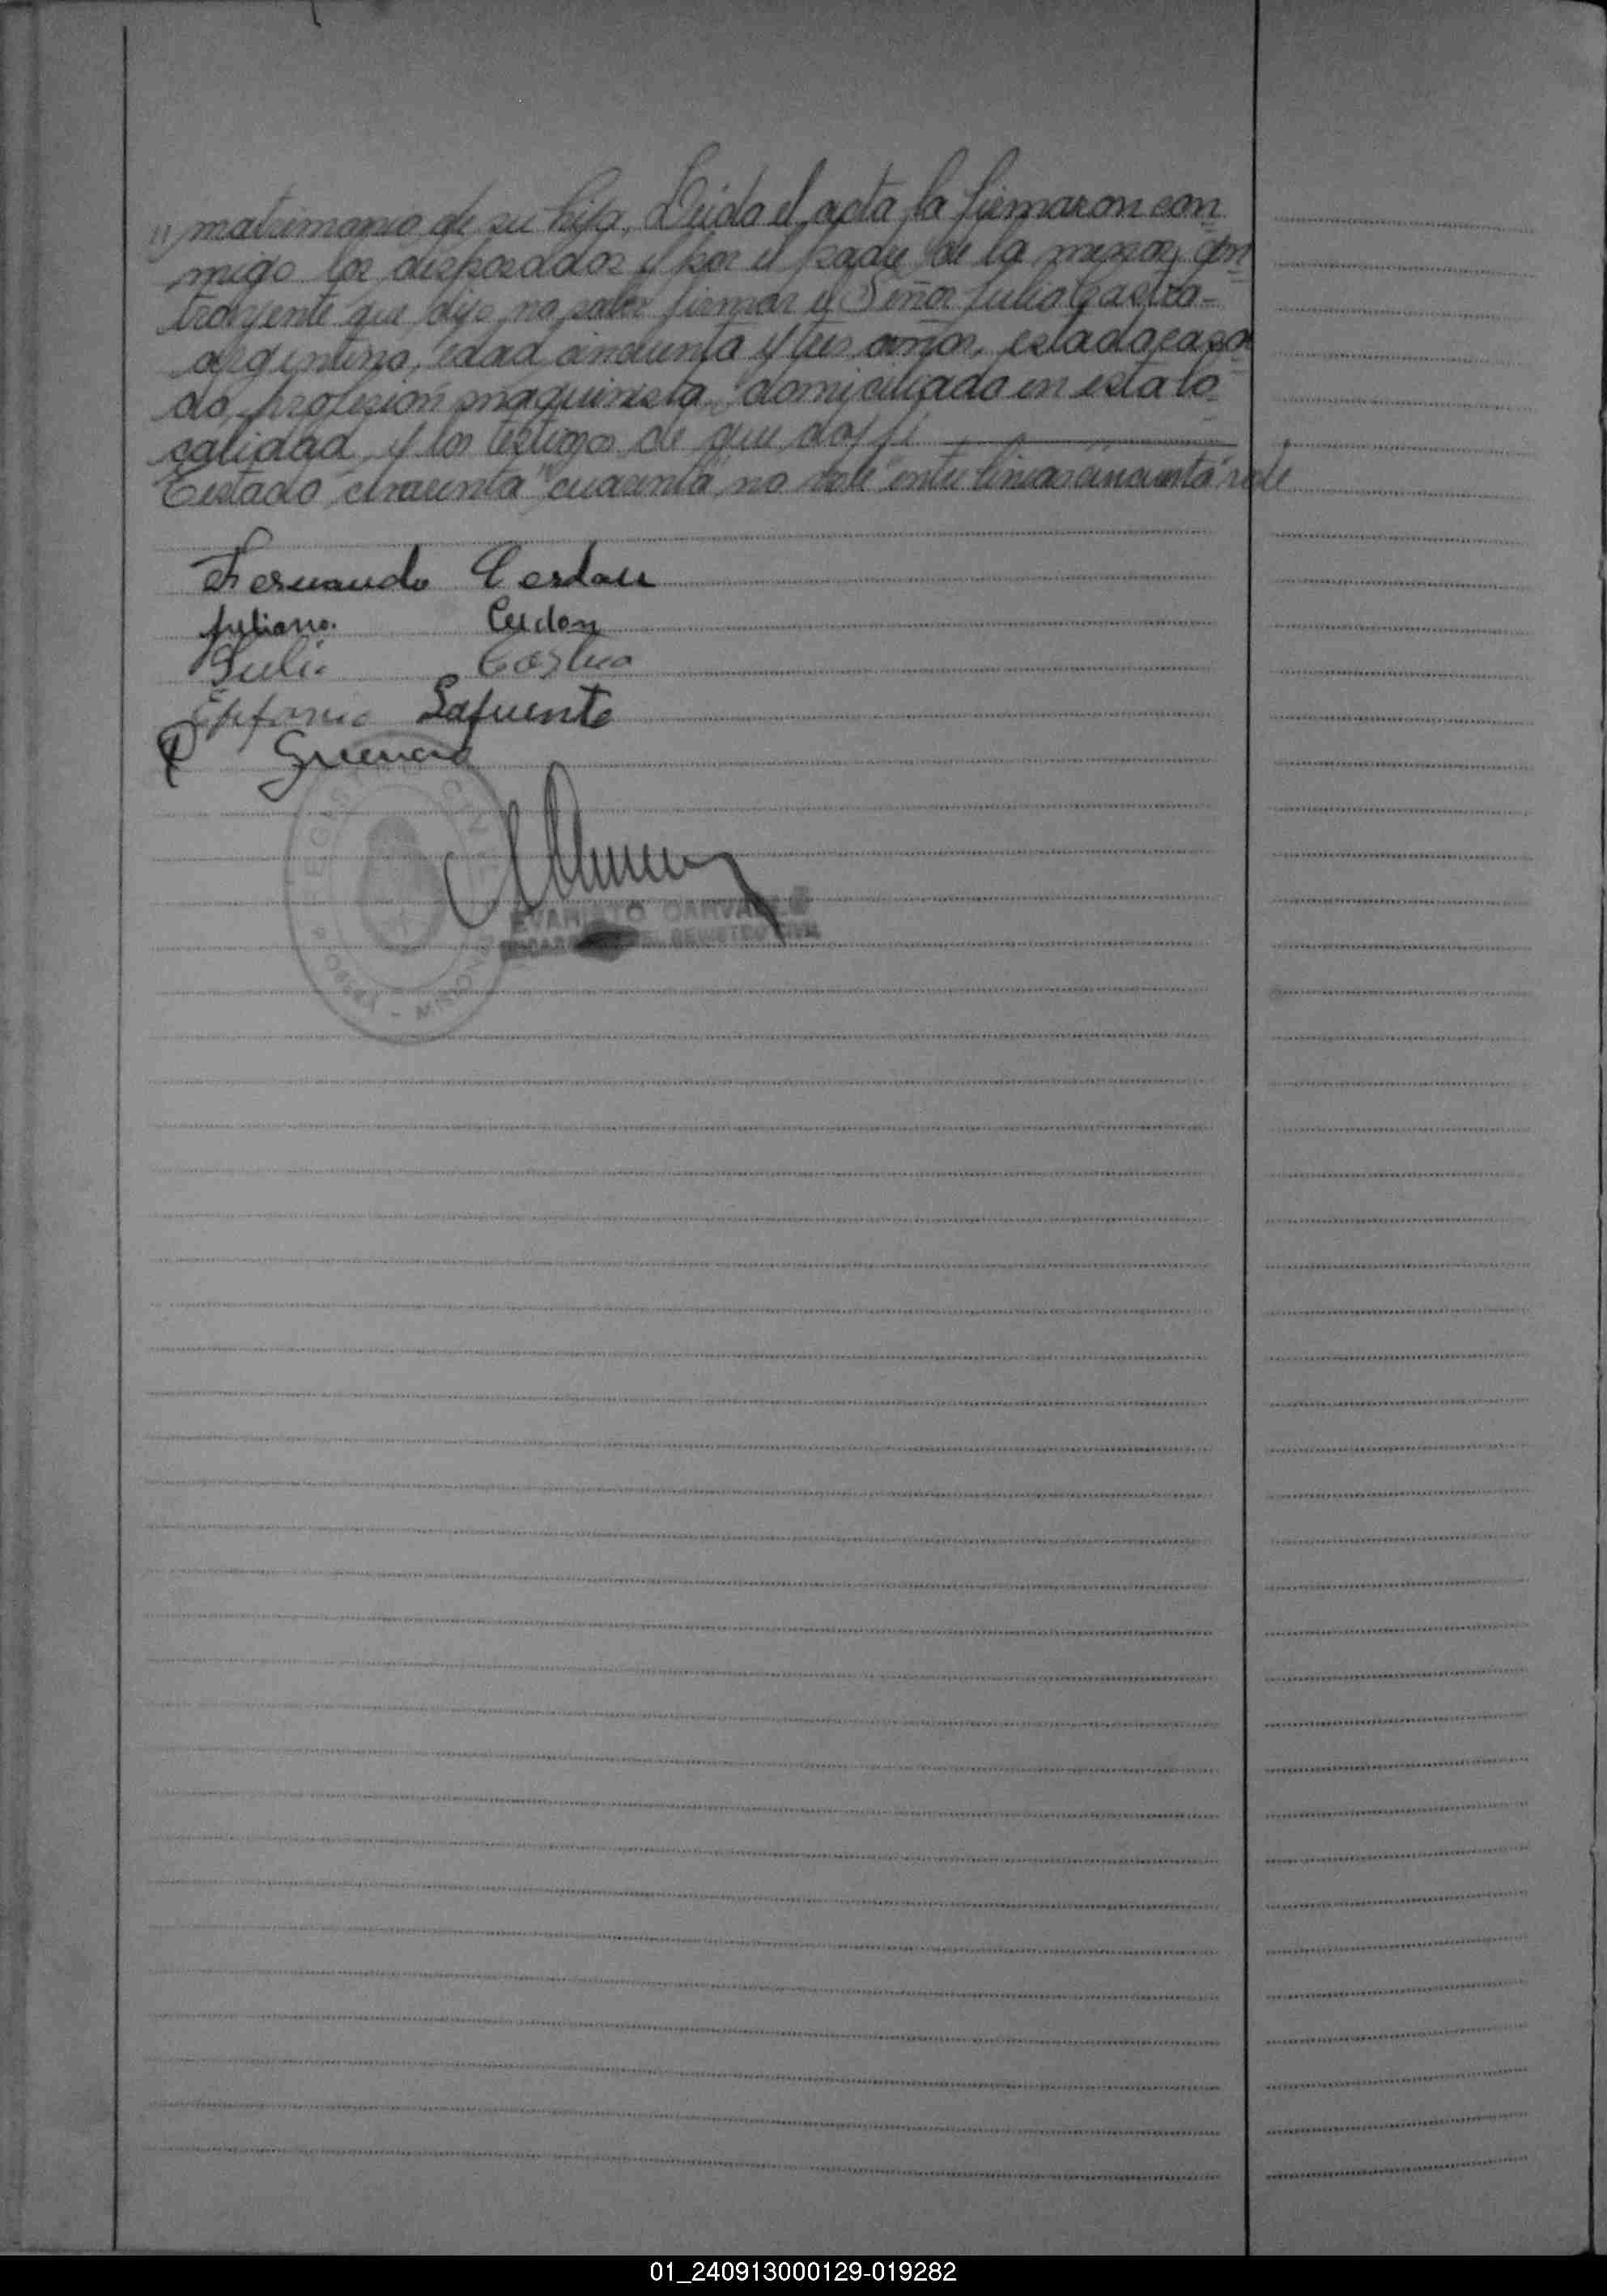 " matrimonio de su hija, Leida el acta la firmaron con
migo los desposados y por el padre de la menor con
trayente que dijo no saber firmar el Señor Julio Castro-
argentino, edad cincuenta y tres años, estado casa
do, profesión maquinista, domiciliado en esta lo
calidad y los testigos de que doy fé
Testado cincuenta "cuarenta" no vale entre lineas cincuenta vale
Fernando Cerdan
Juliana Cerdan
Julio Castro
Epifanio Lafuente
EVARISTO
DEL REGISTRO CIVIL
01_240913000129-019282